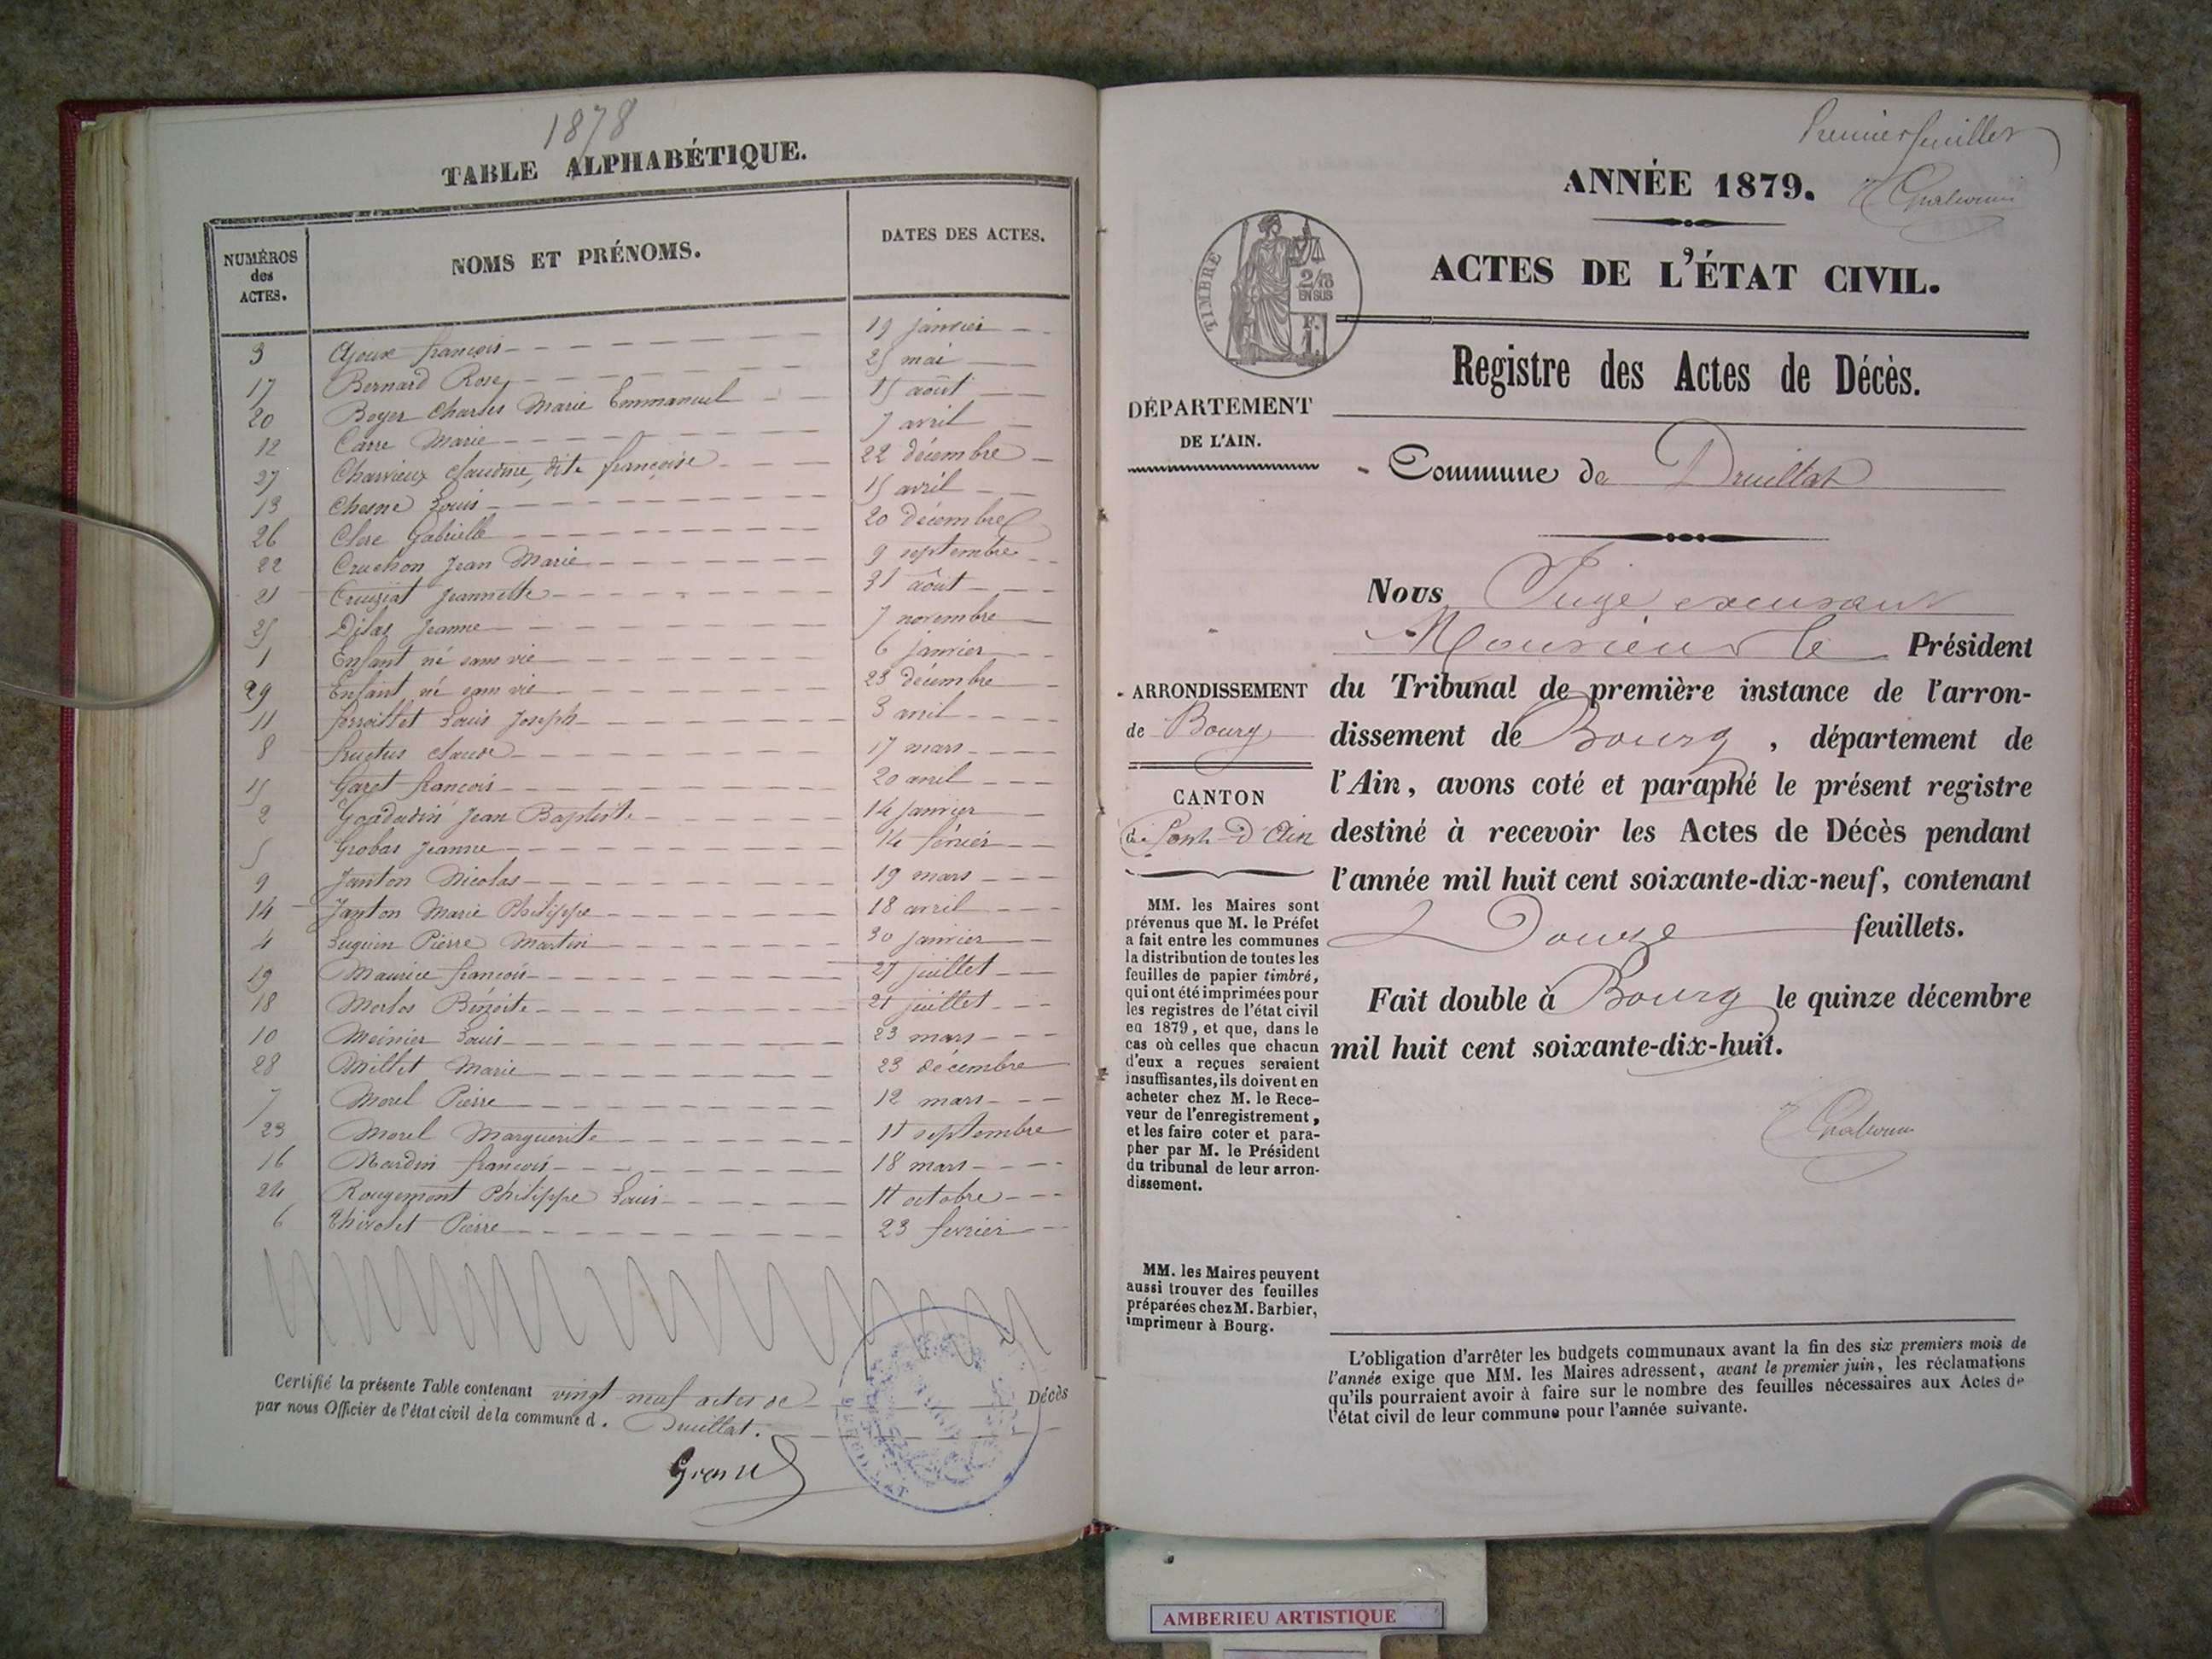 1878
TABLE ALPHABÉTIQUE.
NUMÉROS des ACTES. NOMS ET PRÉNOMS. DATES DES ACTES.
3 Ajoux françois 19 janvier
17 Bernard Rose 25 mai
20 Boyer Charles Marie Emmanuel 15 août
12 Carre Marie 7 avril
27 Charvieux Claudine, dite françoise 22 décembre
13 Chesne Louis 15 avril
26 Clerc Gabrielle 20 décembre
22 Cruchon Jean Marie 9 septembre
21 Cruiziat Jeannette 31 août
25 Dilas Jeanne 7 novembre
1 Enfant né sans vie 6 janvier
29 Enfant né sans vie 23 décembre
11 Louis Joseph 3 avril
8 fructus claude 17 mars
15 Garet françois 20 avril
2 Jean Baptiste 14 janvier
5 Grobas Jeanne 14 février
9 Janton Nicolas 19 mars
14 Janton Marie Philippe 18 avril
4 Luguin Pierre Martin 30 janvier
19 Maurice françois 27 juillet
18 Merlos Benoite 21 juillet
10 Meinier Louis 23 mars
28 Millet Marie 23 décembre
7 Morel Pierre 12 mars
23 Morel Marguerite 11 septembre
16 françois 18 mars
24 Rougemont Philippe Louis 11 octobre
6 Thivolet Pierre 23 fevrier
Certifié la présente Table contenant vingt neuf actes de Décès
par nous Officier de l'état civil de la commune d. Druillat.
Premier feuillet
ANNÉE 1879.
ACTES DE L'ÉTAT CIVIL.
TIMBRE
2/10
EN SUS
F.
1.
Registre des Actes de Décès.
DÉPARTEMENT
DE L'AIN.
Commune de Druillat
Nous Juge excusant
Monsieur le Président
du Tribunal de première instance de l'arron-
dissement de Bourg, département de
l'Ain, avons coté et paraphé le présent registre
destiné à recevoir les Actes de Décès pendant
l'année mil huit cent soixante-dix-neuf, contenant
Douze feuillets.
Fait double à Bourg le quinze décembre
mil huit cent soixante-dix-huit.
ARRONDISSEMENT
de Bourg
CANTON
de Pont-d'Ain
MM. les Maires sont
prévenus que M. le Préfet
a fait entre les communes
la distribution de toutes les
feuilles de papier timbré,
qui ont été imprimées pour
les registres de l'état civil
en 1879, et que, dans le
cas où celles que chacun
d'eux a reçues seraient
insuffisantes, ils doivent en
acheter chez M. le Rece-
veur de l'enregistrement,
et les faire coter et para-
pher par M. le Président
du tribunal de leur arron-
dissement.
MM. les Maires peuvent
aussi trouver des feuilles
préparées chez M. Barbier,
imprimeur à Bourg.
L'obligation d'arrêter les budgets communaux avant la fin des six premiers mois de
l'année exige que MM. les Maires adressent, avant le premier juin, les réclamations
qu'ils pourraient avoir à faire sur le nombre des feuilles nécessaires aux Actes de
l'état civil de leur commune pour l'année suivante.
AMBERIEU ARTISTIQUE